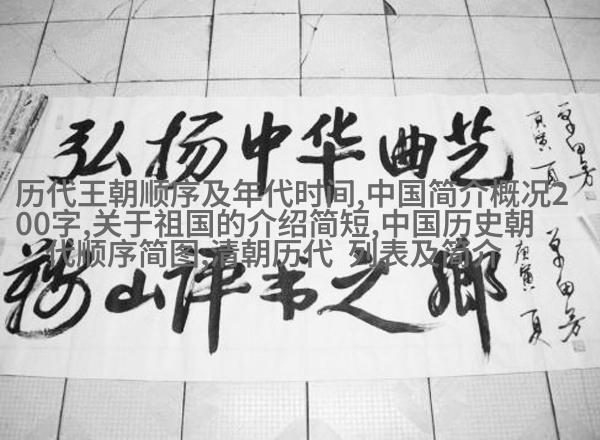 弘扬中华曲艺
单田芳
庚寅 夏
历代王朝顺序及年代时间,中国简介概况2
00字,关于祖国的介绍简短,中国历史朝
代顺序简图,清朝历代 列表及简介
鞍山评书之鄉
单田芳
庚寅 夏